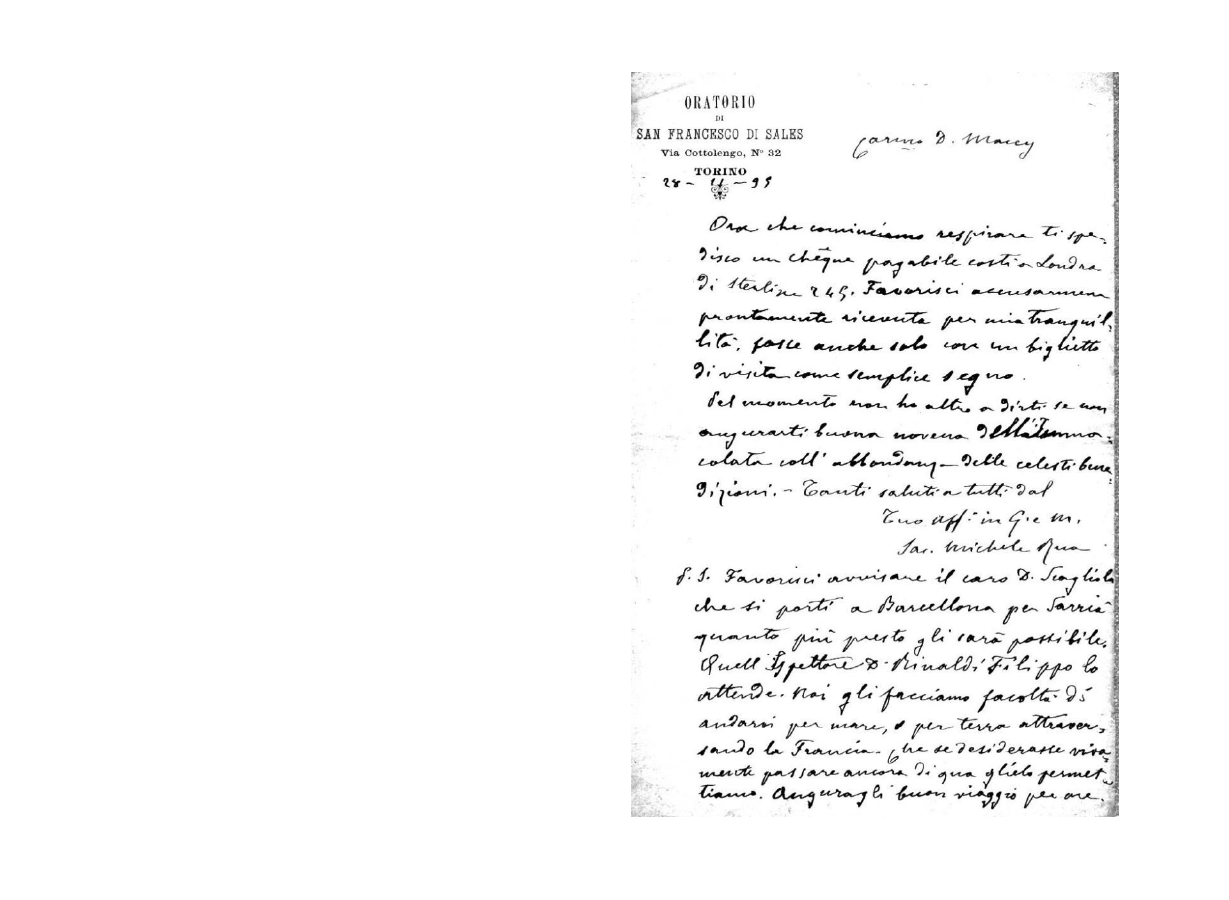 ORATORIO
DI
SAN FRANCESCO DI SALES
Via Cottolengo, N° 32
TORINO
28 - 11 - 95
Carmo D. Macey
Ora che cominciamo respirare ti spe-
disco un chêque pagabile costì a Londra
di Sterline 245. Favorisci accusarmene
prontamente ricevuta per mia tranquil-
lità, fosse anche solo con un biglietto
di visita come semplice segno.
Pel momento non ho altro a dirti se non
augurarti buona novena dell'Imma-
colata coll' abbondanz- delle celesti bene
dizioni. - Tanti saluti a tutti dal
Tuo aff: in G. e M.
Sac. Michele Rua
P. S. Favorisci avvisare il caro D. Scagliola
che si porti a Barcellona per Sarrià
quanto più presto gli sarà possibile.
Quell' Ispettore D. Rinaldi Filippo lo
attende. Noi gli facciamo facoltà di
andarvi per mare, o per terra attraver-
sando la Francia. Che se desiderasse viva-
mente passare ancora di qua glielo permet-
tiamo. Auguragli buon viaggio per me.